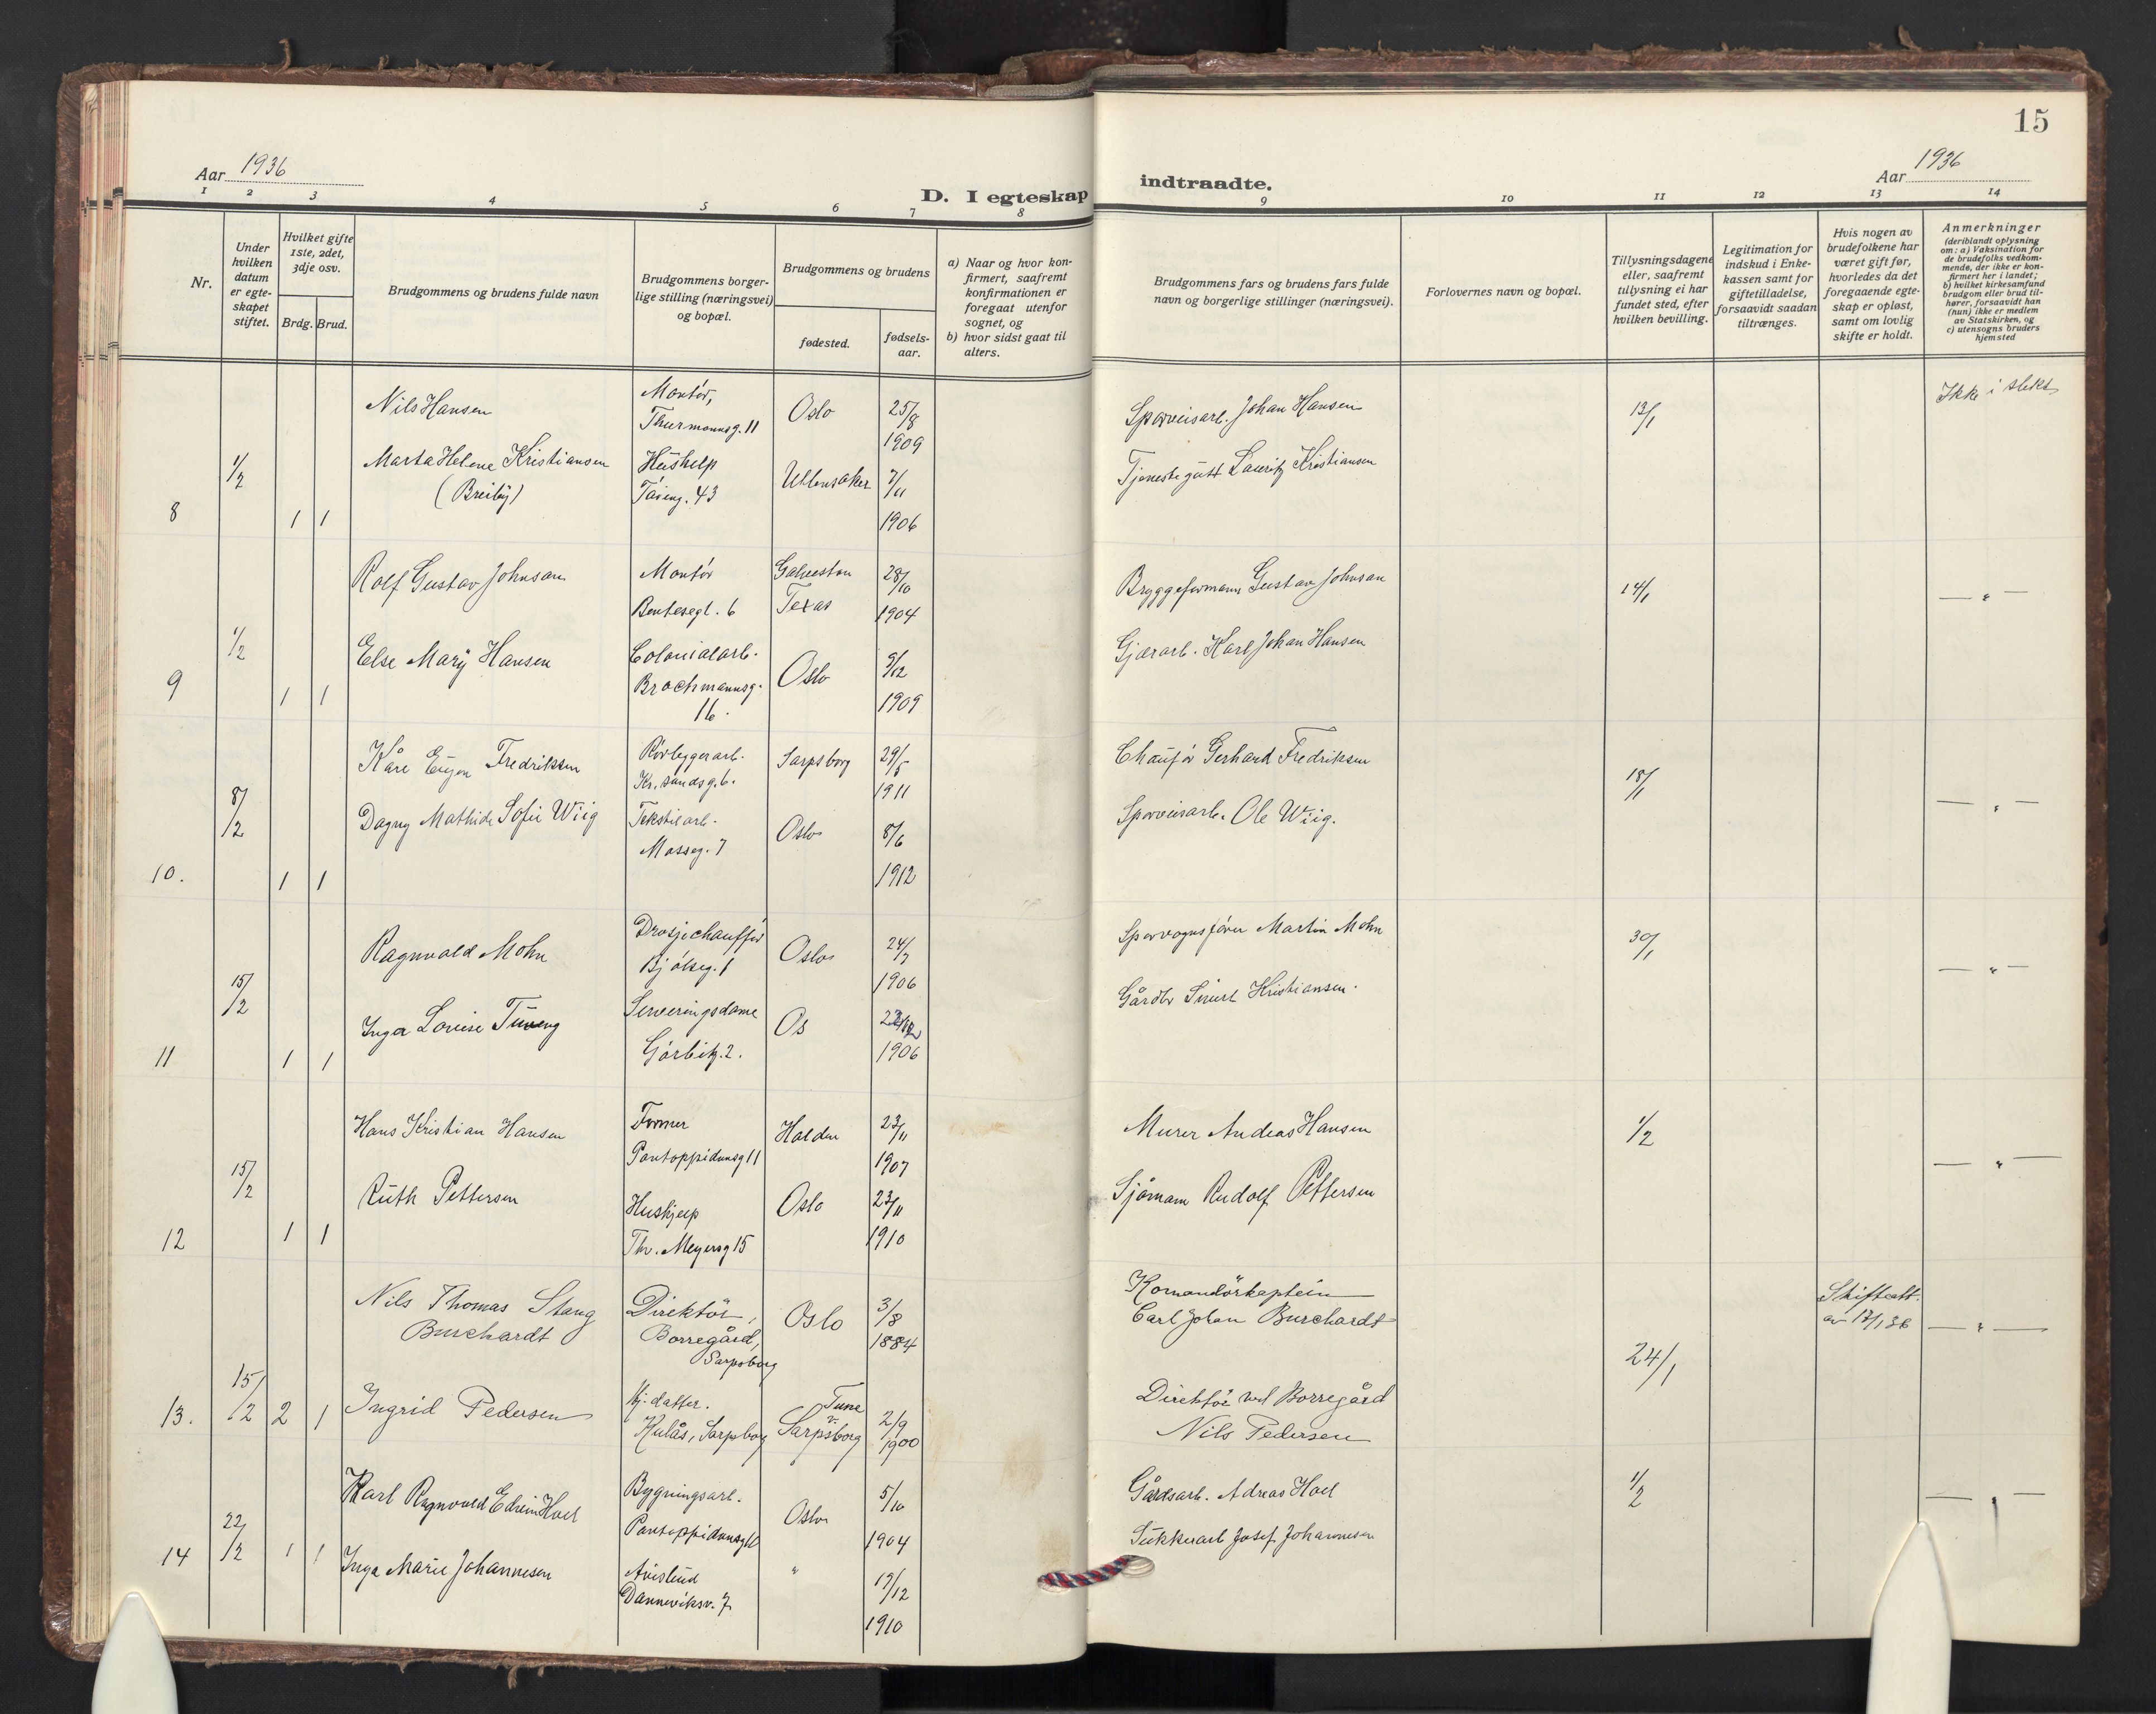 15
Aar 1936
D. I egteskap indtraadte.
Aar 1936
1 2 3 4 5 6 7 8 9 10 11 12 13 14
Nr.
Under
hvilken
datum
er egte-
skapet
stiftet.
Hvilket gifte
1ste, 2det,
3dje osv.
Brdg. Brud.
Brudgommens og brudens fulde navn
Brudgommens borger-
lige stilling (næringsvei)
og bopæl.
Brudgommens og brudens
fødested.
fødsels-
aar.
a) Naar og hvor kon-
firmert, saafremt
konfirmationen er
foregaat utenfor
sognet, og
b) hvor sidst gaat til
alters.
Brudgommens fars og brudens fars fulde
navn og borgerlige stillinger (næringsvei).
Forlovernes navn og bopæl.
Tillysningsdagene
eller, saafremt
tillysning ei har
fundet sted, efter
hvilken bevilling.
Legitimation for
indskud i Enke-
kassen samt for
giftetilladelse,
forsaavidt saadan
tiltrænges.
Hvis nogen av
brudefolkene har
været gift før,
hvorledes da det
foregaaende egte-
skap er opløst,
samt om lovlig
skifte er holdt.
Anmerkninger
(deriblandt oplysning
om: a) Vaksination for
de brudefolks vedkom-
mende, der ikke er kon-
firmert her i landet;
b) hvilket kirkesamfund
brudgom eller brud til-
hører, forsaavidt han
(hun) ikke er medlem
av Statskirken, og
c) utensogns bruders
hjemsted
8
1/2
1 1
Nils Hansen
Montör,
Thurmannsg. 11
Oslo
25/8
1909
Sporveisarb. Johan Hansen
13/1
Ikke i slekt
Marta Helene Kristiansen
(Breiby)
Hushelp
Täieng. 43
Ullensaker
7/11
1906
Tjenestegutt Lauritz Kristiansen
9
1/2
1 1
Rolf Gustav Johnsan
Montör
Bentsegt. 6
Galveston
Texas
28/10
1904
Bryggeformann Gustav Johnsan
14/1
— " —
Else Mary Hansen
Colonialarb.
Brochmannsg.
16.
Oslo
9/12
1909
Gjærarb. Karl Johan Hansen
10.
8/2
1 1
Kåre Eugen Fredriksen
Rörleggerarb.
Kr.sandsg. 6.
Sarpsborg
29/5
1911
Chaufför Gerhard Fredriksen
18/1
— " —
Dagny Mathilde Sofie Wiig
Tekstilarb.
Mosseg. 7
Oslo
8/6
1912
Sporveisarb. Ole Wiig.
11
15/2
1 1
Ragnvald Mohn
Drosjechaufför
Bjölseg. 1
Oslo
1906
Sporvognsförer Martin Mohn
30/1
— " —
Inga Louise Tuveng
Serveringsdame
Görbitz. 2.
Os
1906
Kristiansen.
12
15/2
1 1
Hans Kristian Hansen
Former
Pontoppidansg 11
Halden
23/11
1907
Murer Andreas Hansen
1/2
— " —
Ruth Pettersen
Huskjelp
Thv. Meyersg 15
Oslo
23/11
1910
Sjömann Rudolf Pettersen
13.
15/2
2 1
Nils Thomas Stang
Burchardt
Direktör,
Borregård,
Sarpsborg
Oslo
3/8
1884
Komandörkaptein
Carl Johan Burchardt
24/1
Skifteatt.
av 17/1 36
— " —
Ingrid Pedersen
Hj. datter.
Kulås, Sarpsborg
Tune
v.
Sarpsborg
2/9
1900
Direktör ved Borregård
Nils Pedersen
14
22/2
1 1
Karl Ragnvald Edvin Hoel
Bygningsarb.
Pontoppidansg 11
Oslo
5/10
1904
Gårdsarb. Adreas Hoel
1/2
— " —
Inga Marie Johannesen
Avisbud
Danneviksv. 7
"
19/12
1910
Sukkerarb Josef Johannesen